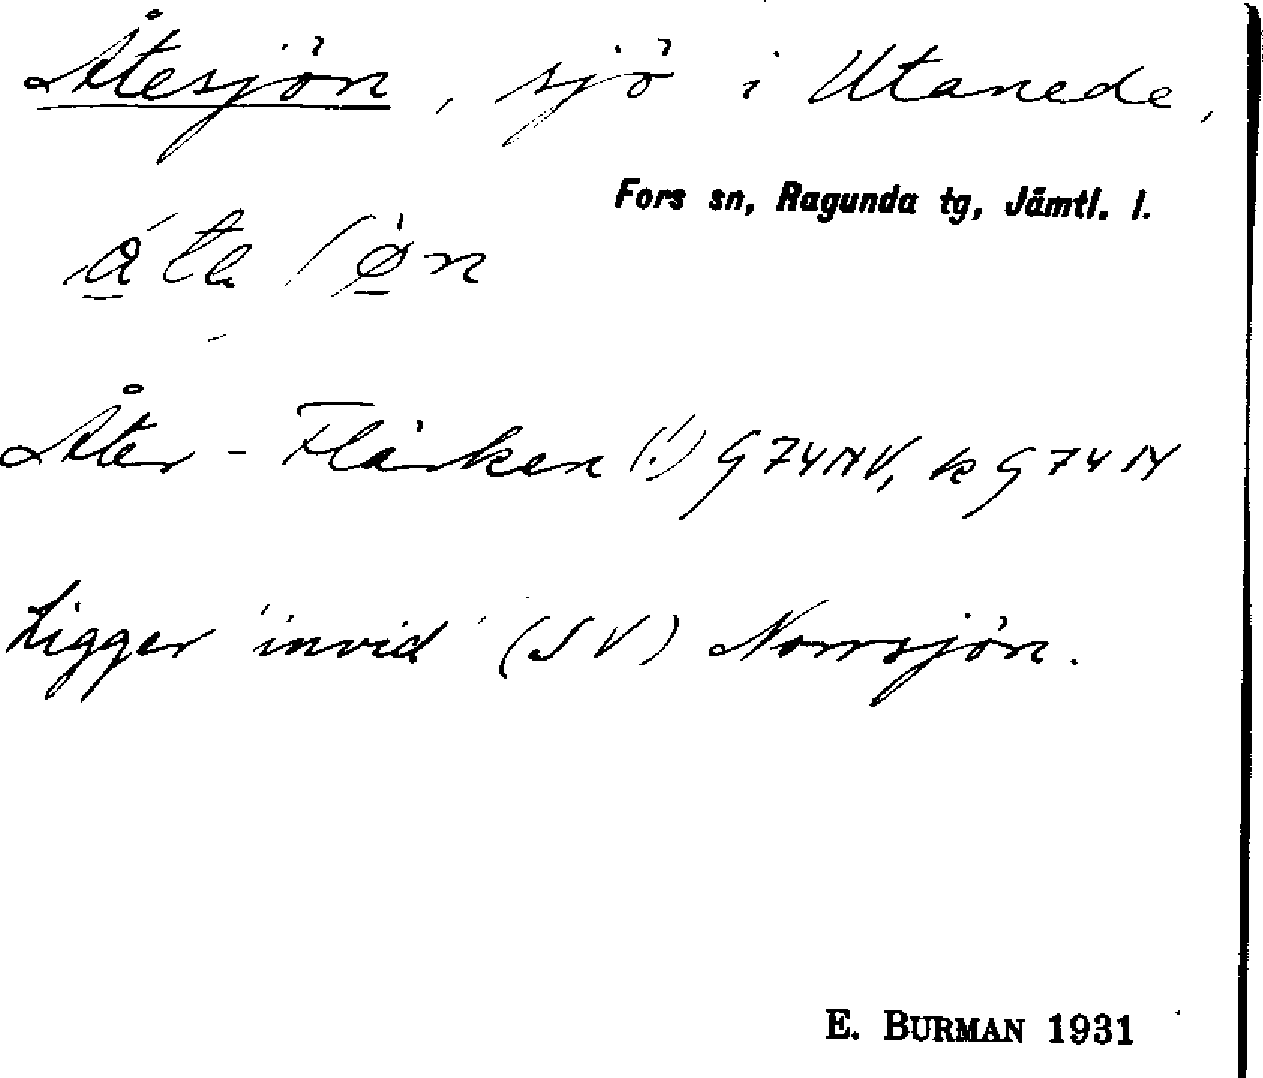 Åtesjön, sjö i Utanede,
Fors sn, Ragunda tg, Jämtl. l.
Åter-Flärken (!) G74NV, k G74N
Ligger 'invid' (SV) Norrsjön.
E. BURMAN 1931